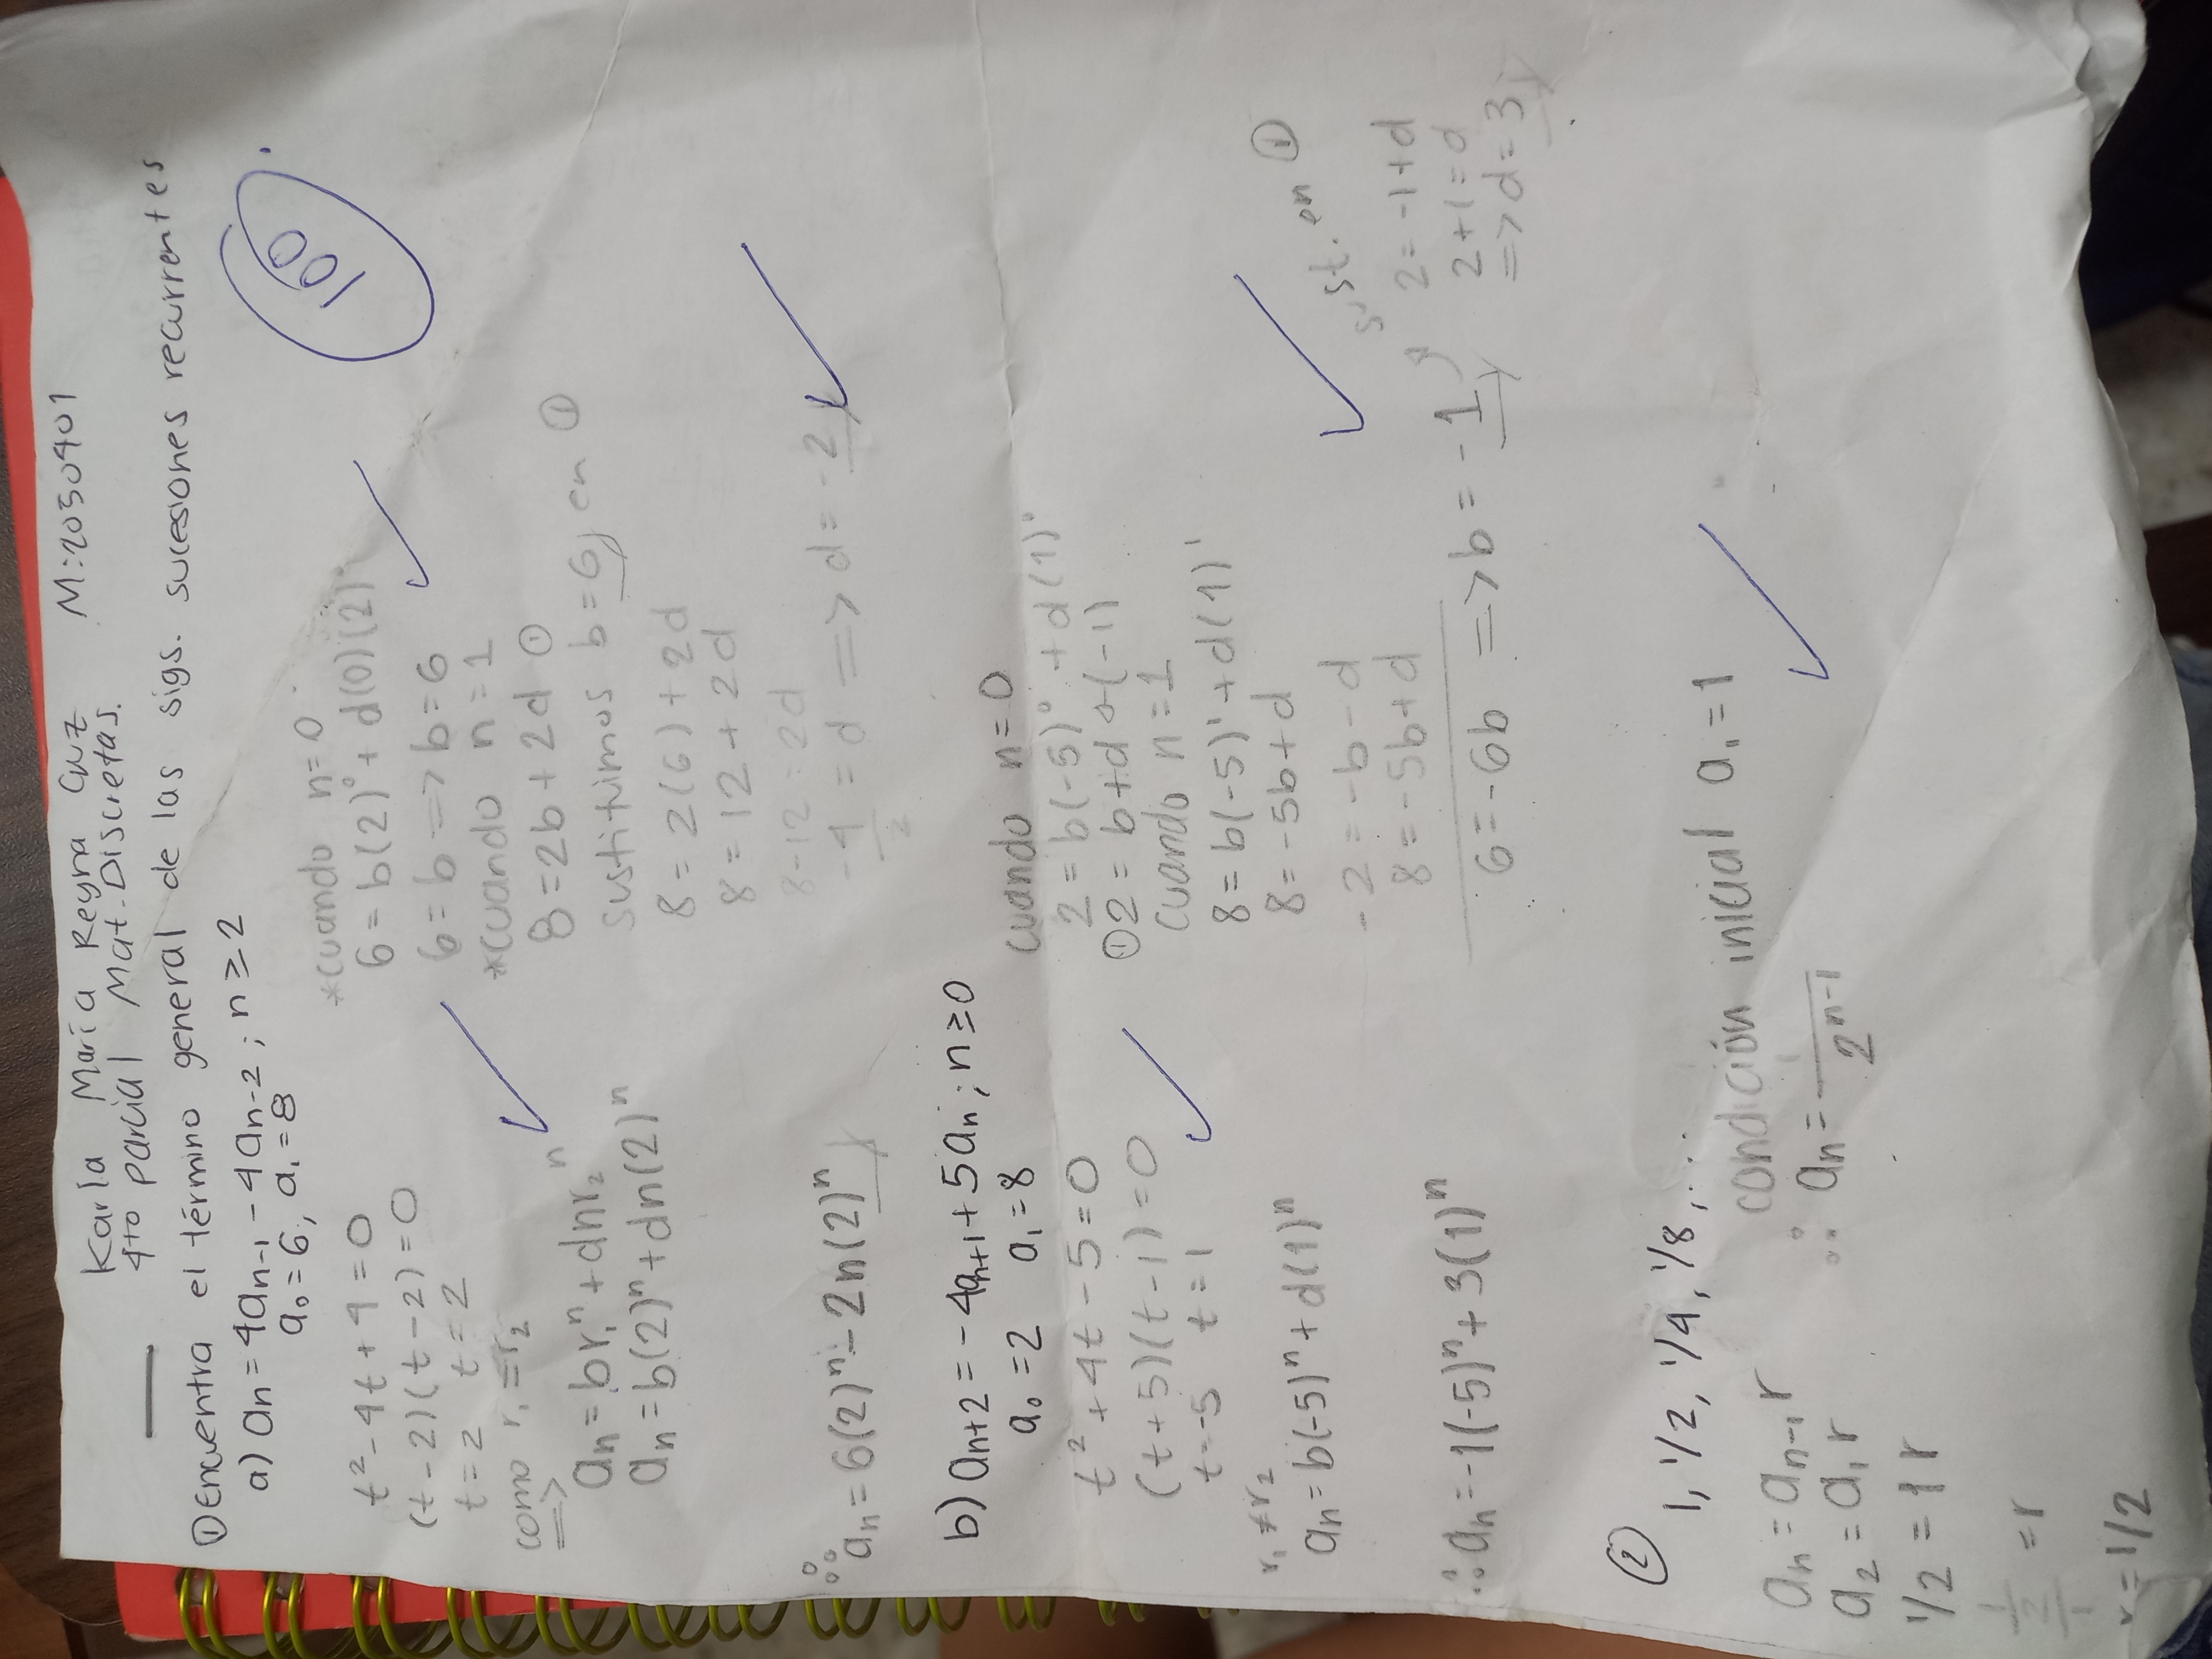 Karla María Reyna Cruz M:2050401
4to parcial Mat. Discretas.
① Encuentra el término general de las sigs. sucesiones recurrentes
a) aₙ = 4aₙ₋₁ - 4aₙ₋₂ ; n ≥ 2
a₀ = 6, a₁ = 8
100
t² - 4t + 4 = 0
(t - 2)(t - 2) = 0
t = 2 t = 2
como r₁ = r₂
=>
aₙ = br₁ⁿ + dnr₂ⁿ
aₙ = b(2)ⁿ + dn(2)ⁿ
∴ aₙ = 6(2)ⁿ - 2n(2)ⁿ
*cuando n = 0
6 = b(2)⁰ + d(0)(2)⁰
6 = b => b = 6
*cuando n = 1
8 = 2b + 2d ①
sustituimos b = 6 en ①
8 = 2(6) + 2d
8 = 12 + 2d
8 - 12 = 2d
-4/2 = d => d = -2
b) aₙ₊₂ = -4aₙ₊₁ + 5aₙ ; n ≥ 0
a₀ = 2 a₁ = 8
t² + 4t - 5 = 0
(t + 5)(t - 1) = 0
t = -5 t = 1
r₁ ≠ r₂
aₙ = b(-5)ⁿ + d(1)ⁿ
∴ aₙ = -1(-5)ⁿ + 3(1)ⁿ
cuando n = 0
2 = b(-5)⁰ + d(1)⁰
① 2 = b + d (-1)
cuando n = 1
8 = b(-5)¹ + d(1)¹
8 = -5b + d
-2 = -b - d
8 = -5b + d
6 = -6b => b = -1
sust. en ①
2 = -1 + d
2 + 1 = d
=> d = 3
②
1, 1/2, 1/4, 1/8, ...
aₙ = aₙ₋₁ r
a₂ = a₁ r
1/2 = 1 r
1/2/1 = r
r = 1/2
condición inicial a₁ = 1
∴ aₙ = 1/2ⁿ⁻¹